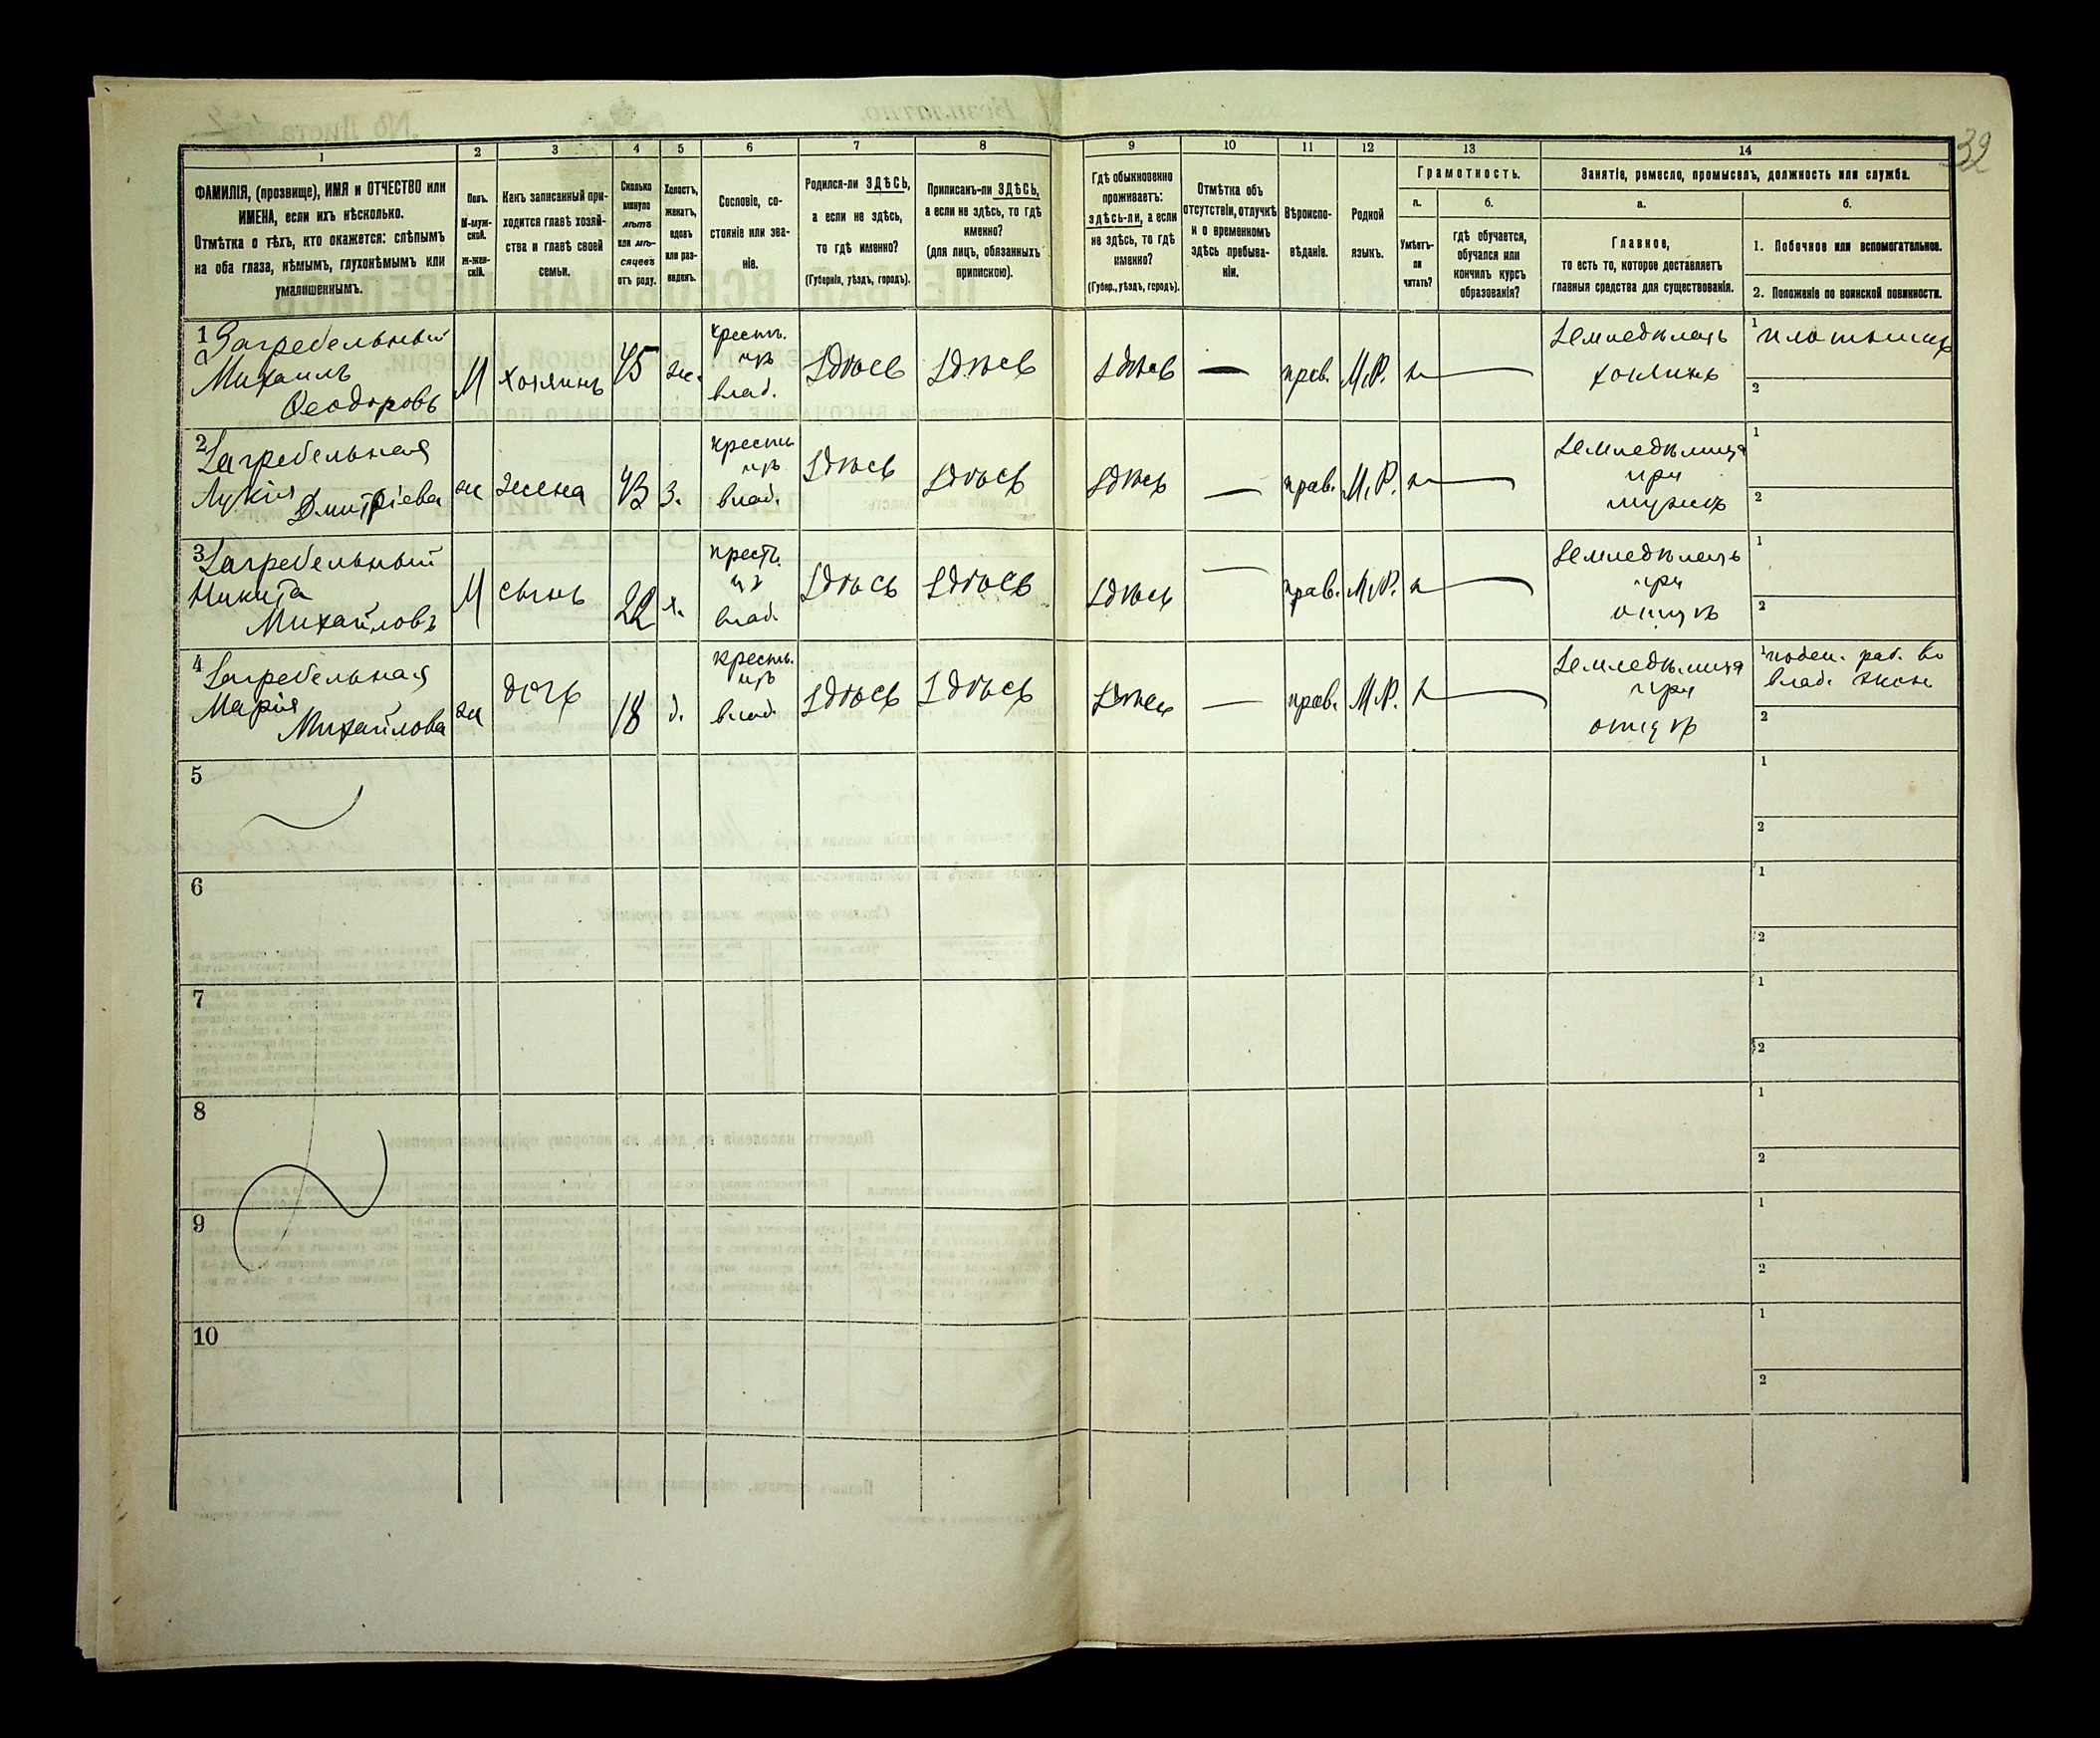 32
1 2 3 4 5 6 7 8 9 10 11 12 13 14
ФАМИЛІЯ, (прозвище), ИМЯ и ОТЧЕСТВО или
ИМЕНА, если ихъ нѣсколько.
Отмѣтка о тѣхъ, кто окажется: слѣпымъ
на оба глаза, нѣмымъ, глухонѣмымъ или
умалишеннымъ.
Полъ.
М-муж-
ской.
Ж-жен-
скій.
Какъ записанный при-
ходится главѣ хозяй-
ства и главѣ своей
семьи.
Сколько
минуло
лѣтъ
или мѣ-
сяцевъ
отъ роду.
Холостъ,
женатъ,
вдовъ
или раз-
веденъ.
Сословіе, со-
стояніе или зва-
ніе.
Родился-ли ЗДѢСЬ,
а если не здѣсь,
то гдѣ именно?
(Губернія, уѣздъ, городъ).
Приписанъ-ли ЗДѢСЬ,
а если не здѣсь, то гдѣ
именно?
(для лицъ, обязанныхъ
припискою).
Гдѣ обыкновенно
проживаетъ:
здѣсь-ли, а если
не здѣсь, то гдѣ
именно?
(Губер., уѣздъ, городъ).
Отмѣтка объ
отсутствіи, отлучкѣ
и о временномъ
здѣсь пребыва-
ніи.
Вѣроиспо-
вѣданіе.
Родной
языкъ.
Грамотность.
а.
Умѣетъ-
ли
читать?
б.
гдѣ обучается,
обучался или
кончилъ курсъ
образованія?
Занятіе, ремесло, промыселъ, должность или служба.
а.
Главное,
то есть то, которое доставляетъ
главныя средства для существованія.
б.
1. Побочное или вспомогательное.
2. Положеніе по воинской повинности.
1 Загребельный
Михаилъ
Ѳеодоровъ
М
хозяинъ
45
ж.
крестъ.
изъ
влад.
Здѣсь
Здѣсь
Здѣсь
—
прав.
М.Р.
н
Земледѣлецъ
хозяинъ
1 плотникъ
2
2 Загребельная
Лукія
Дмитріева
ж
жена
43
з.
крестъ
изъ
влад.
Здѣсь
Здѣсь
Здѣсь
—
прав.
М.Р.
н
Земледѣлица
при
мужѣ
1
2
3 Загребельный
Никита
Михайловъ
М
сынъ
22
х.
крест.
изъ
влад.
Здѣсь
Здѣсь
Здѣсь
—
прав.
М.Р.
н
Земледѣлецъ
при
отцѣ
1
2
4 Загребельная
Марія
Михайлова
ж
дочь
18
д.
крестъ.
изъ
влад.
Здѣсь
Здѣсь
Здѣсь
—
прав.
М.Р.
н
Земледѣлица
при
отцѣ
1 поден. раб. во
влад. экон.
2
5
1
2
6
1
2
7
1
2
8
1
2
9
1
2
10
1
2